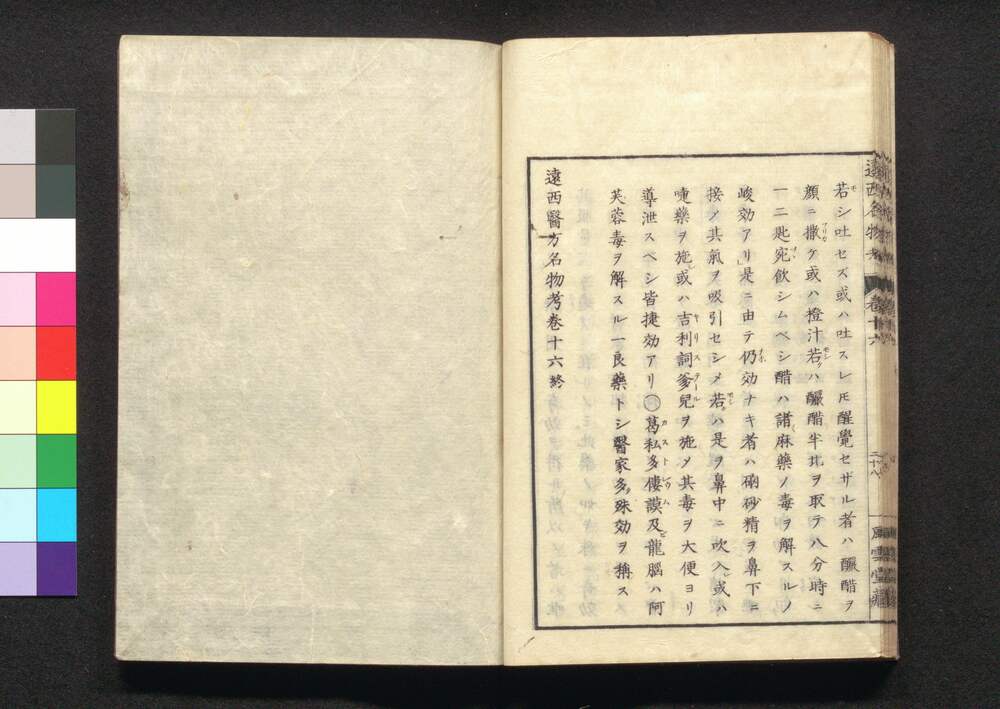 若シ吐セズ或ハ吐スレ𪜈醒覺セザル者ハ釅醋ヲ
顔ニ撒ケ或ハ橙汁若クハ釅醋半兆ヲ取テ八分時ニ
一二匙宛飲シムベシ醋ハ諸麻藥ノ毒ヲ解スルノ
峻効アリ是ニ由テ仍効ナキ者ハ硇砂精ヲ鼻下ニ
接メ其氣ヲ吸引セシメ若クハ是ヲ鼻中ニ吹入シ或ハ
嚏藥ヲ施シ或ハ吉利詞爹兒ヲ施メ其毒ヲ大便ヨリ
導泄スベシ皆捷効アリ〇葛私多僂謨及ビ龍腦ハ阿
芙蓉毒ヲ解スル一良藥トシ醫家多ク殊効ヲ稱ス
遠西醫方名物考卷十六終
遠西名物考
卷十六
二十八
風雲堂藏